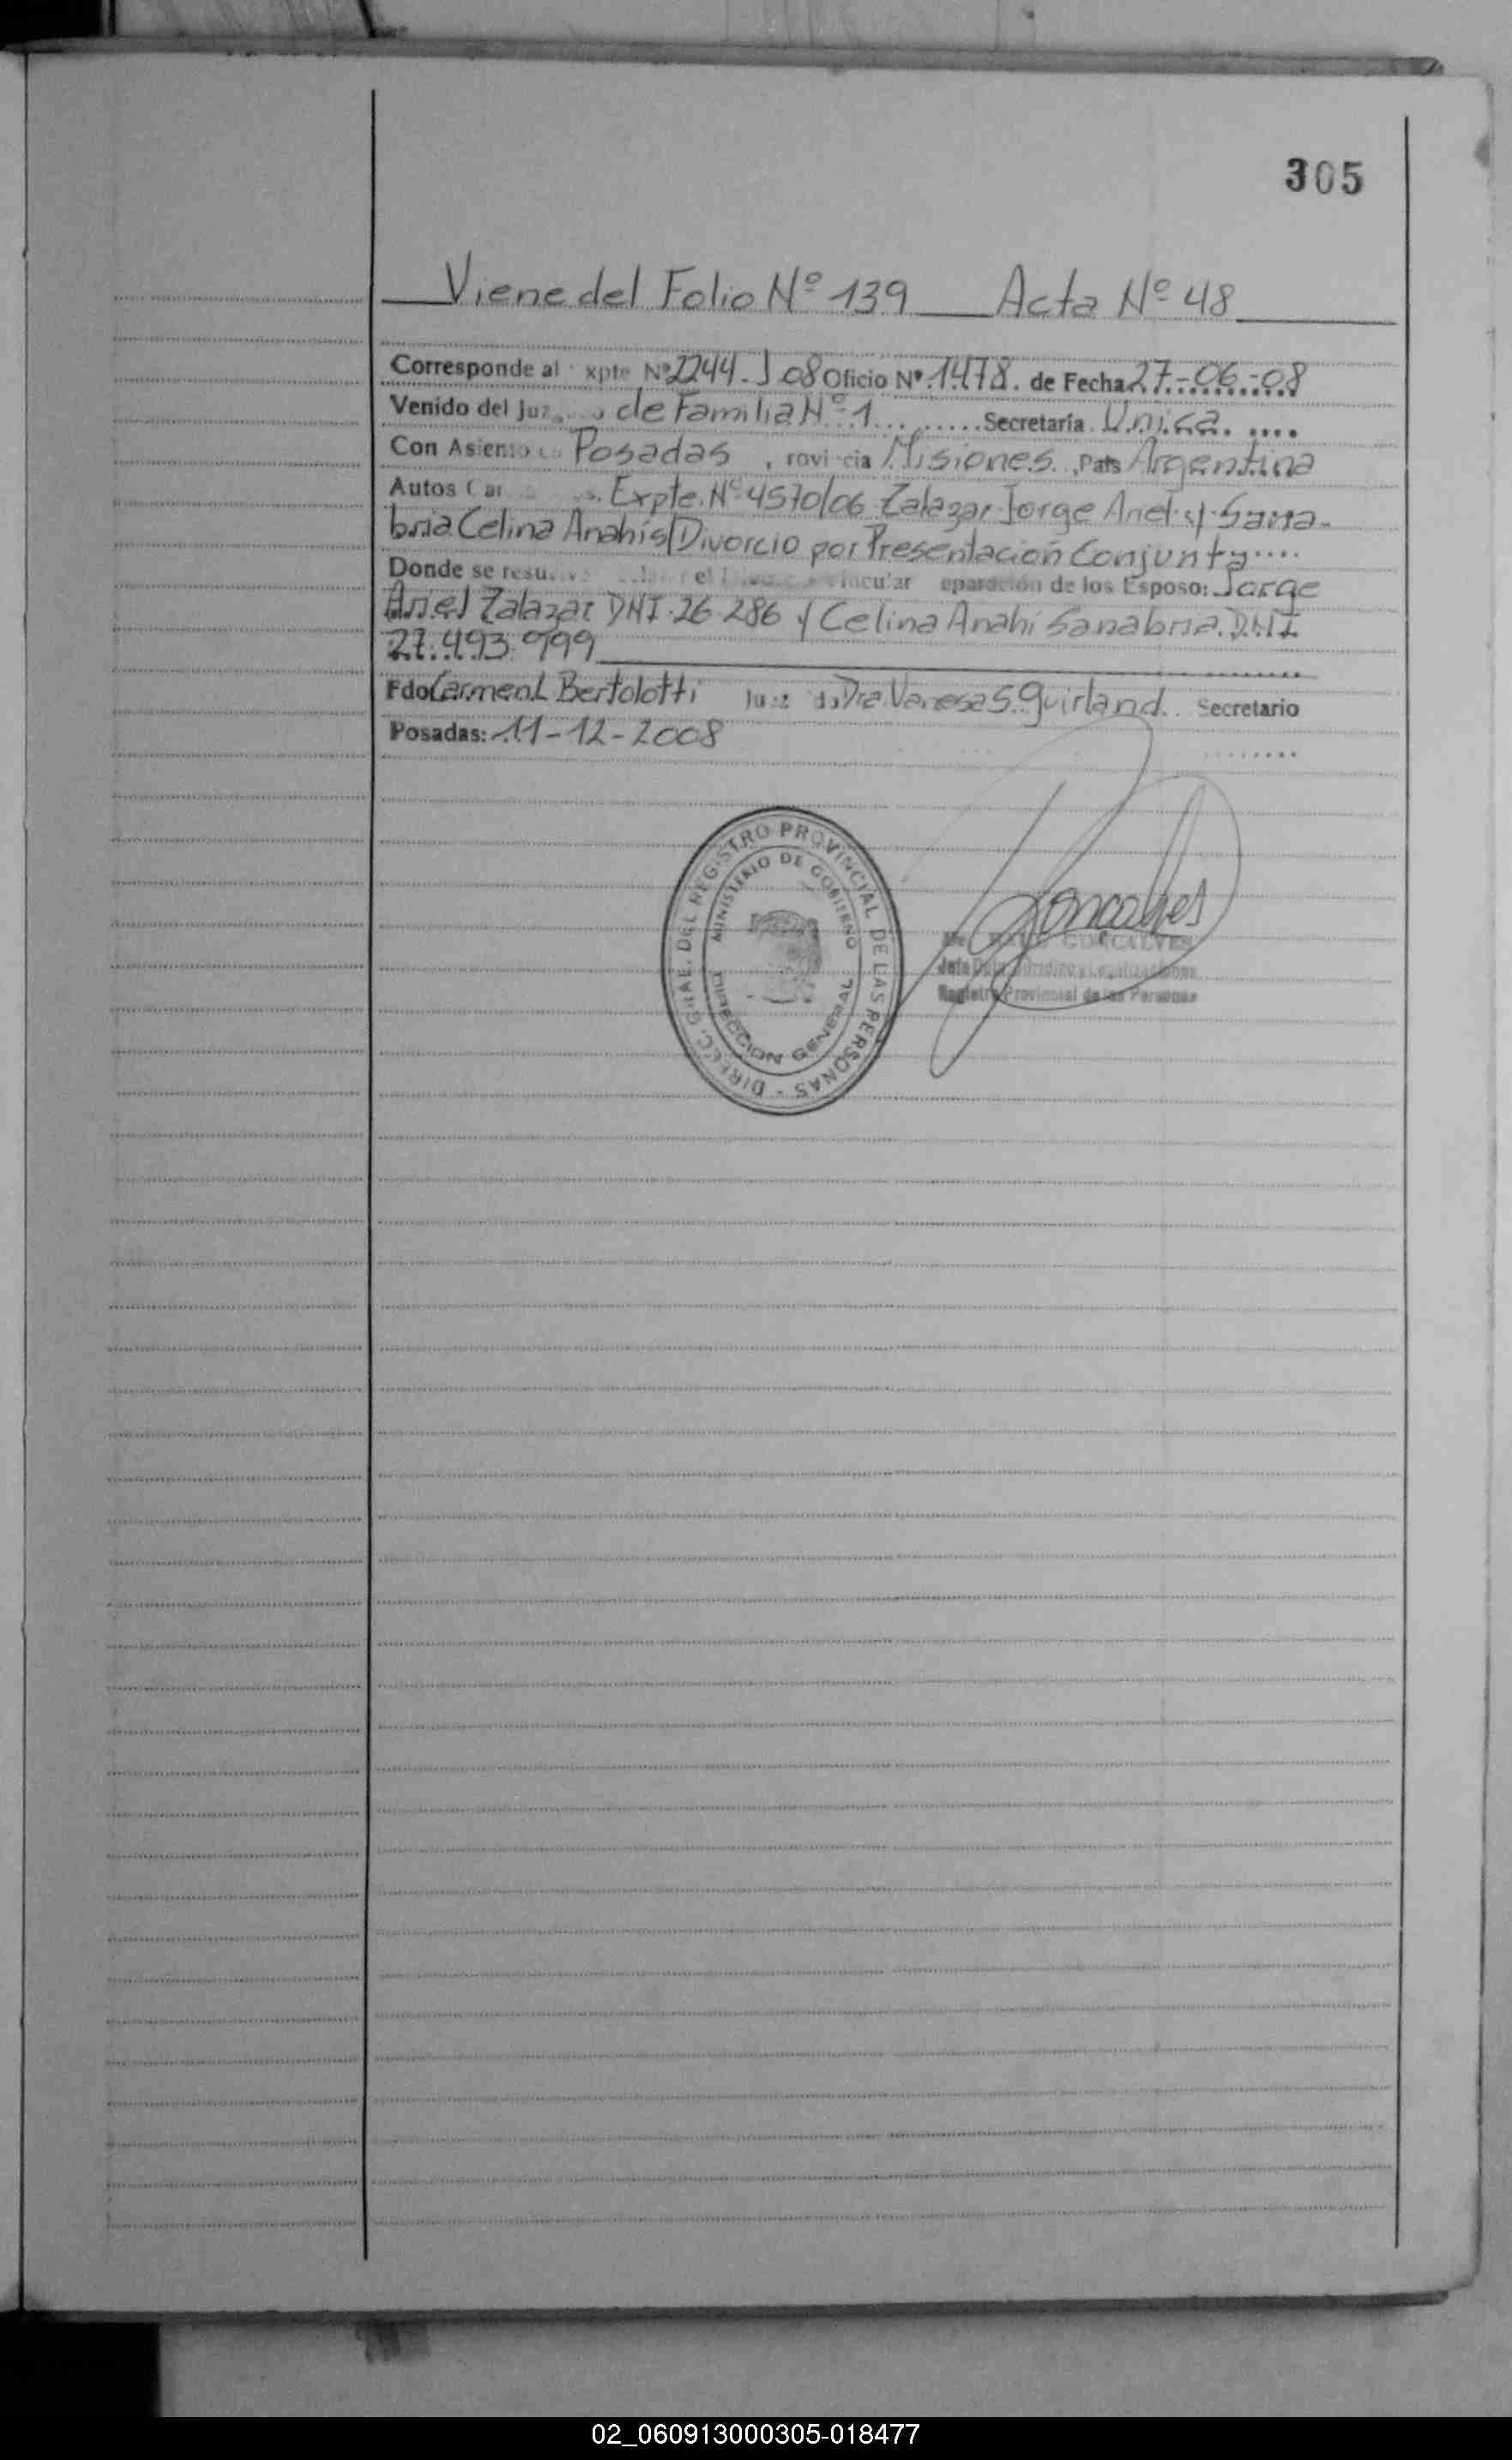 305
Viene del Folio Nº 139 Acta Nº 48
Corresponde al xpte Nº 2244-J 08 Oficio Nº 1478. de Fecha 27-06-08
Venido del Juz de Familia Nº 1 Secretaria Unica
Con Asiento en Posadas, rovincia Misiones. Pais Argentina
Autos Expte. Nº 4570/06 Zalazar Jorge Ariel y Sana-
bria Celina Anahi s/Divorcio por Presentación Conjunta
Donde se resu el vincular eparación de los Esposo: Jorge
Ariel Zalazar DNI 26.286 y Celina Anahi Sanabria D.N.I
27.493.999
Fdo Carmen L Bertolotti Juez Dra. Vanesa S. Guirland. Secretario
Posadas: 11-12-2008
DIRECC. GRAL. DEL REGISTRO PROVINCIAL DE LAS PERSONAS -
MINISTERIO DE GOBIERNO
DIRECCION GENERAL
Goncalves
GONCALVES
Jefe Dpto. Juridico y Legalizaciones
Registro Provincial de las Personas
02_060913000305-018477